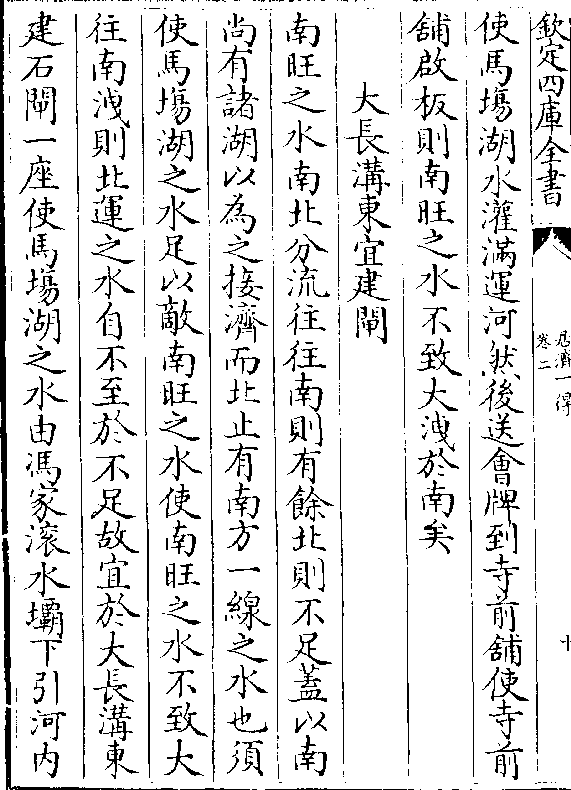 欽定四庫全書
居濟一得
卷二
十
使馬場湖水灌滿運河然後送會牌到寺前舖使寺前
舖啟板則南旺之水不致大洩於南矣
大長溝東宜建閘
南旺之水南北分流往往南則有餘北則不足蓋以南
尚有諸湖以為之接濟而北止有南方一線之水也須
使馬場湖之水足以敵南旺之水使南旺之水不致大
往南洩則北運之水自不至於不足故宜於大長溝東
建石閘一座使馬場湖之水由馮家滚水壩下引河内